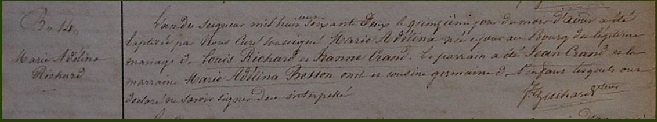 Bn 14
Marie Adelina
Richard
L'an du Seigneur mil huit soixante deux le quinzième jour du mois d'Avril a été
baptisée par Nous Curé soussigné Marie Adelina née ce jour au Bourg du légitime
mariage de Louis Richard et Jeanne Craud. Le parrain a été Jean Craud et la
marraine Marie Adelina Besson oncle et cousine germaine de l'enfant lesquels ont
déclaré ne savoir signer de ce interpellé